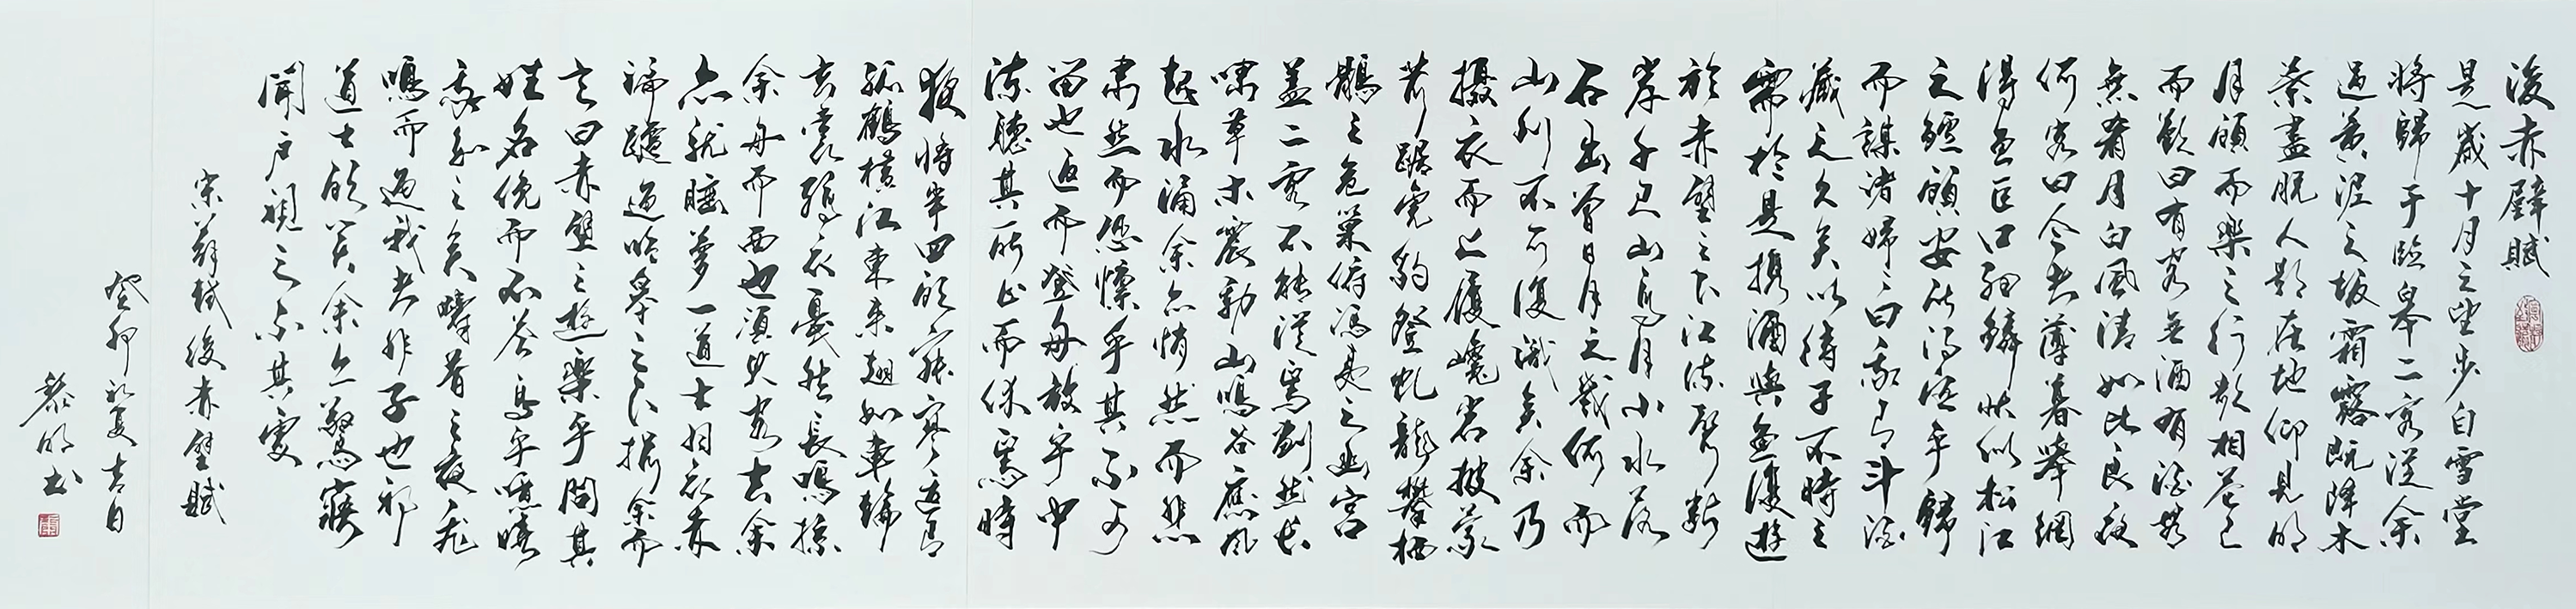 後赤壁賦
是歲十月之望步自雪堂
將歸于臨皋二客從余
過黃泥之坂霜露既降木
葉盡脫人影在地仰見明
月顧而樂之行歌相答已
而歎曰有客無酒有酒無
無肴月白風清如此良夜
何客曰今者薄暮舉網
得魚巨口細鱗狀似松江
之鱸顧安所得酒乎歸
而謀諸婦婦曰我有斗酒
藏之久矣以待子不時之
需於是攜酒與魚復遊
於赤壁之下江流有聲斷
岸千尺山高月小水落
石出曾日月之幾何而
山川不可復識矣余乃
攝衣而上履巉岩披蒙
茸踞虎豹登虬龍攀栖
鶻之危巢俯馮夷之幽宮
蓋二客不能從焉劃然長
嘯草木震動山鳴谷應風
起水涌余亦悄然而悲
肅然而恐凜乎其不可
留也返而登舟放乎中
流聽其所止而休焉時
夜將半四顧寂寥適有
孤鶴橫江東來翅如車輪
玄裳縞衣戛然長鳴掠
余舟而西也須臾客去余
亦就睡夢一道士羽衣
蹁躚過臨皋之下揖余而
言曰赤壁之遊樂乎問其
姓名俛而不答嗚乎噫嘻
我知之矣疇昔之夜飛
鳴而過我者非子也邪
道士顧笑余亦驚寤
開戶視之不見其處
宋蘇軾後赤壁賦
癸卯初夏吉日
黎明書